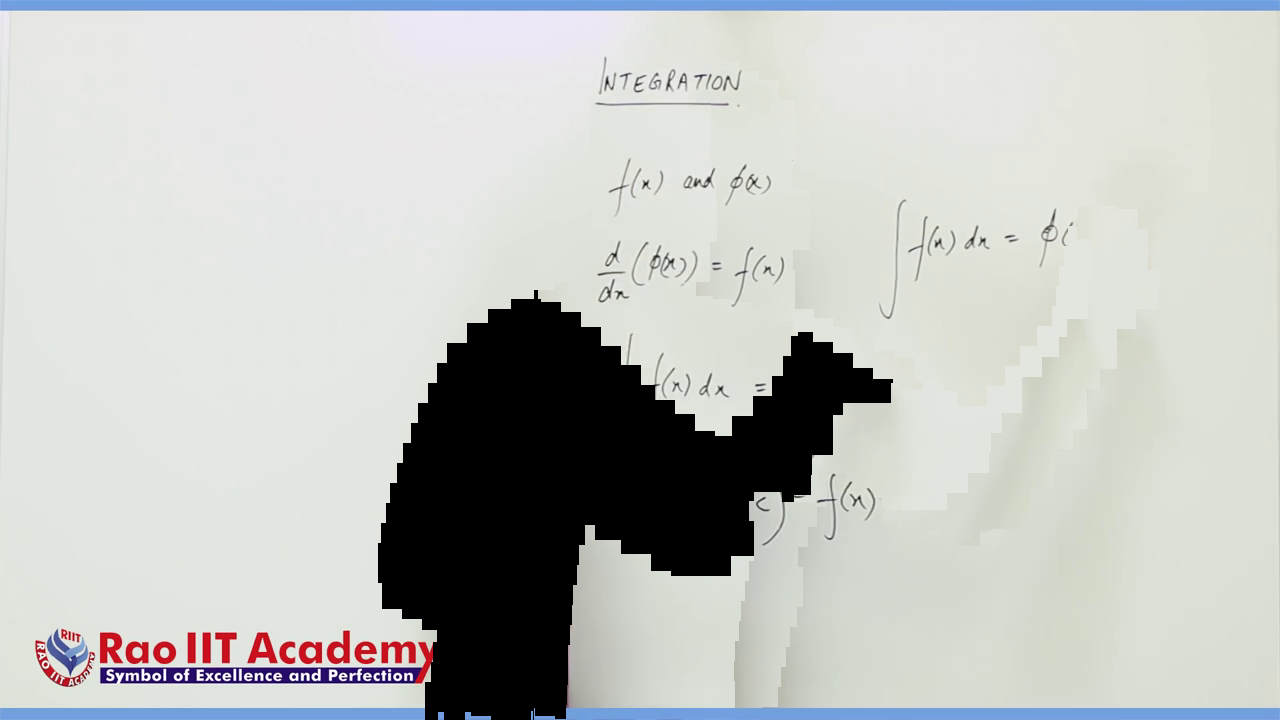 INTEGRATION
f(x) and ϕ(x)
d/dx (ϕ(x)) = f(x)
∫f(x) dx = ϕ(
f(x) dx =
c) = f(x)
RIIT
RAO IIT ACADEMY
Rao IIT Academy
Symbol of Excellence and Perfection